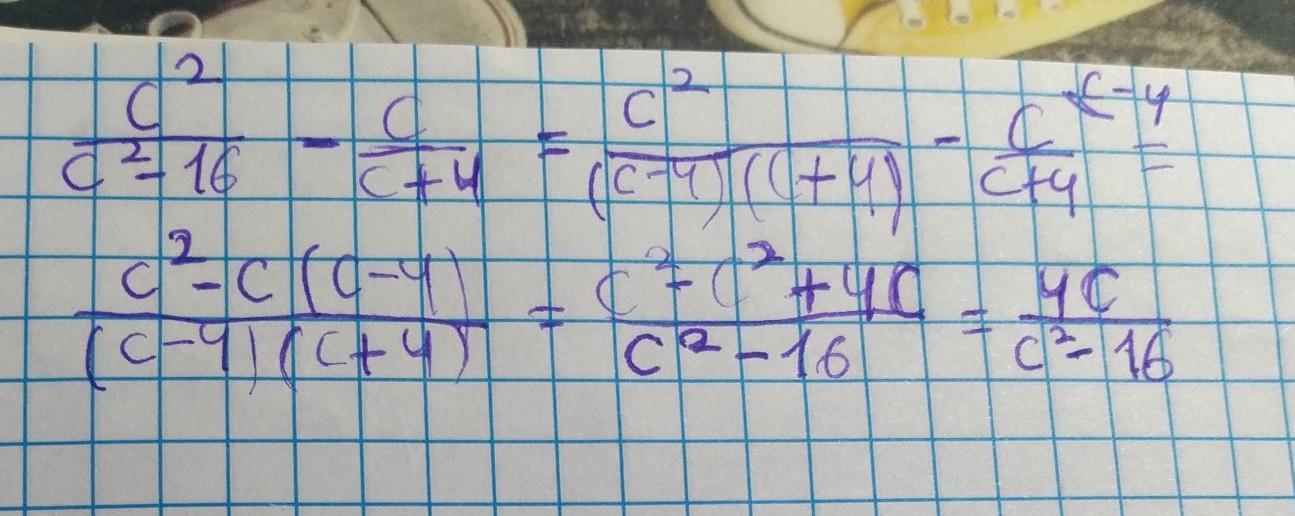 c²/(c²-16) - c/(c+4) = c²/((c-4)(c+4)) - c^(c-4)/(c+4) =
(c²-c(c-4))/((c-4)(c+4)) = (c²-c²+4c)/(c²-16) = 4c/(c²-16)